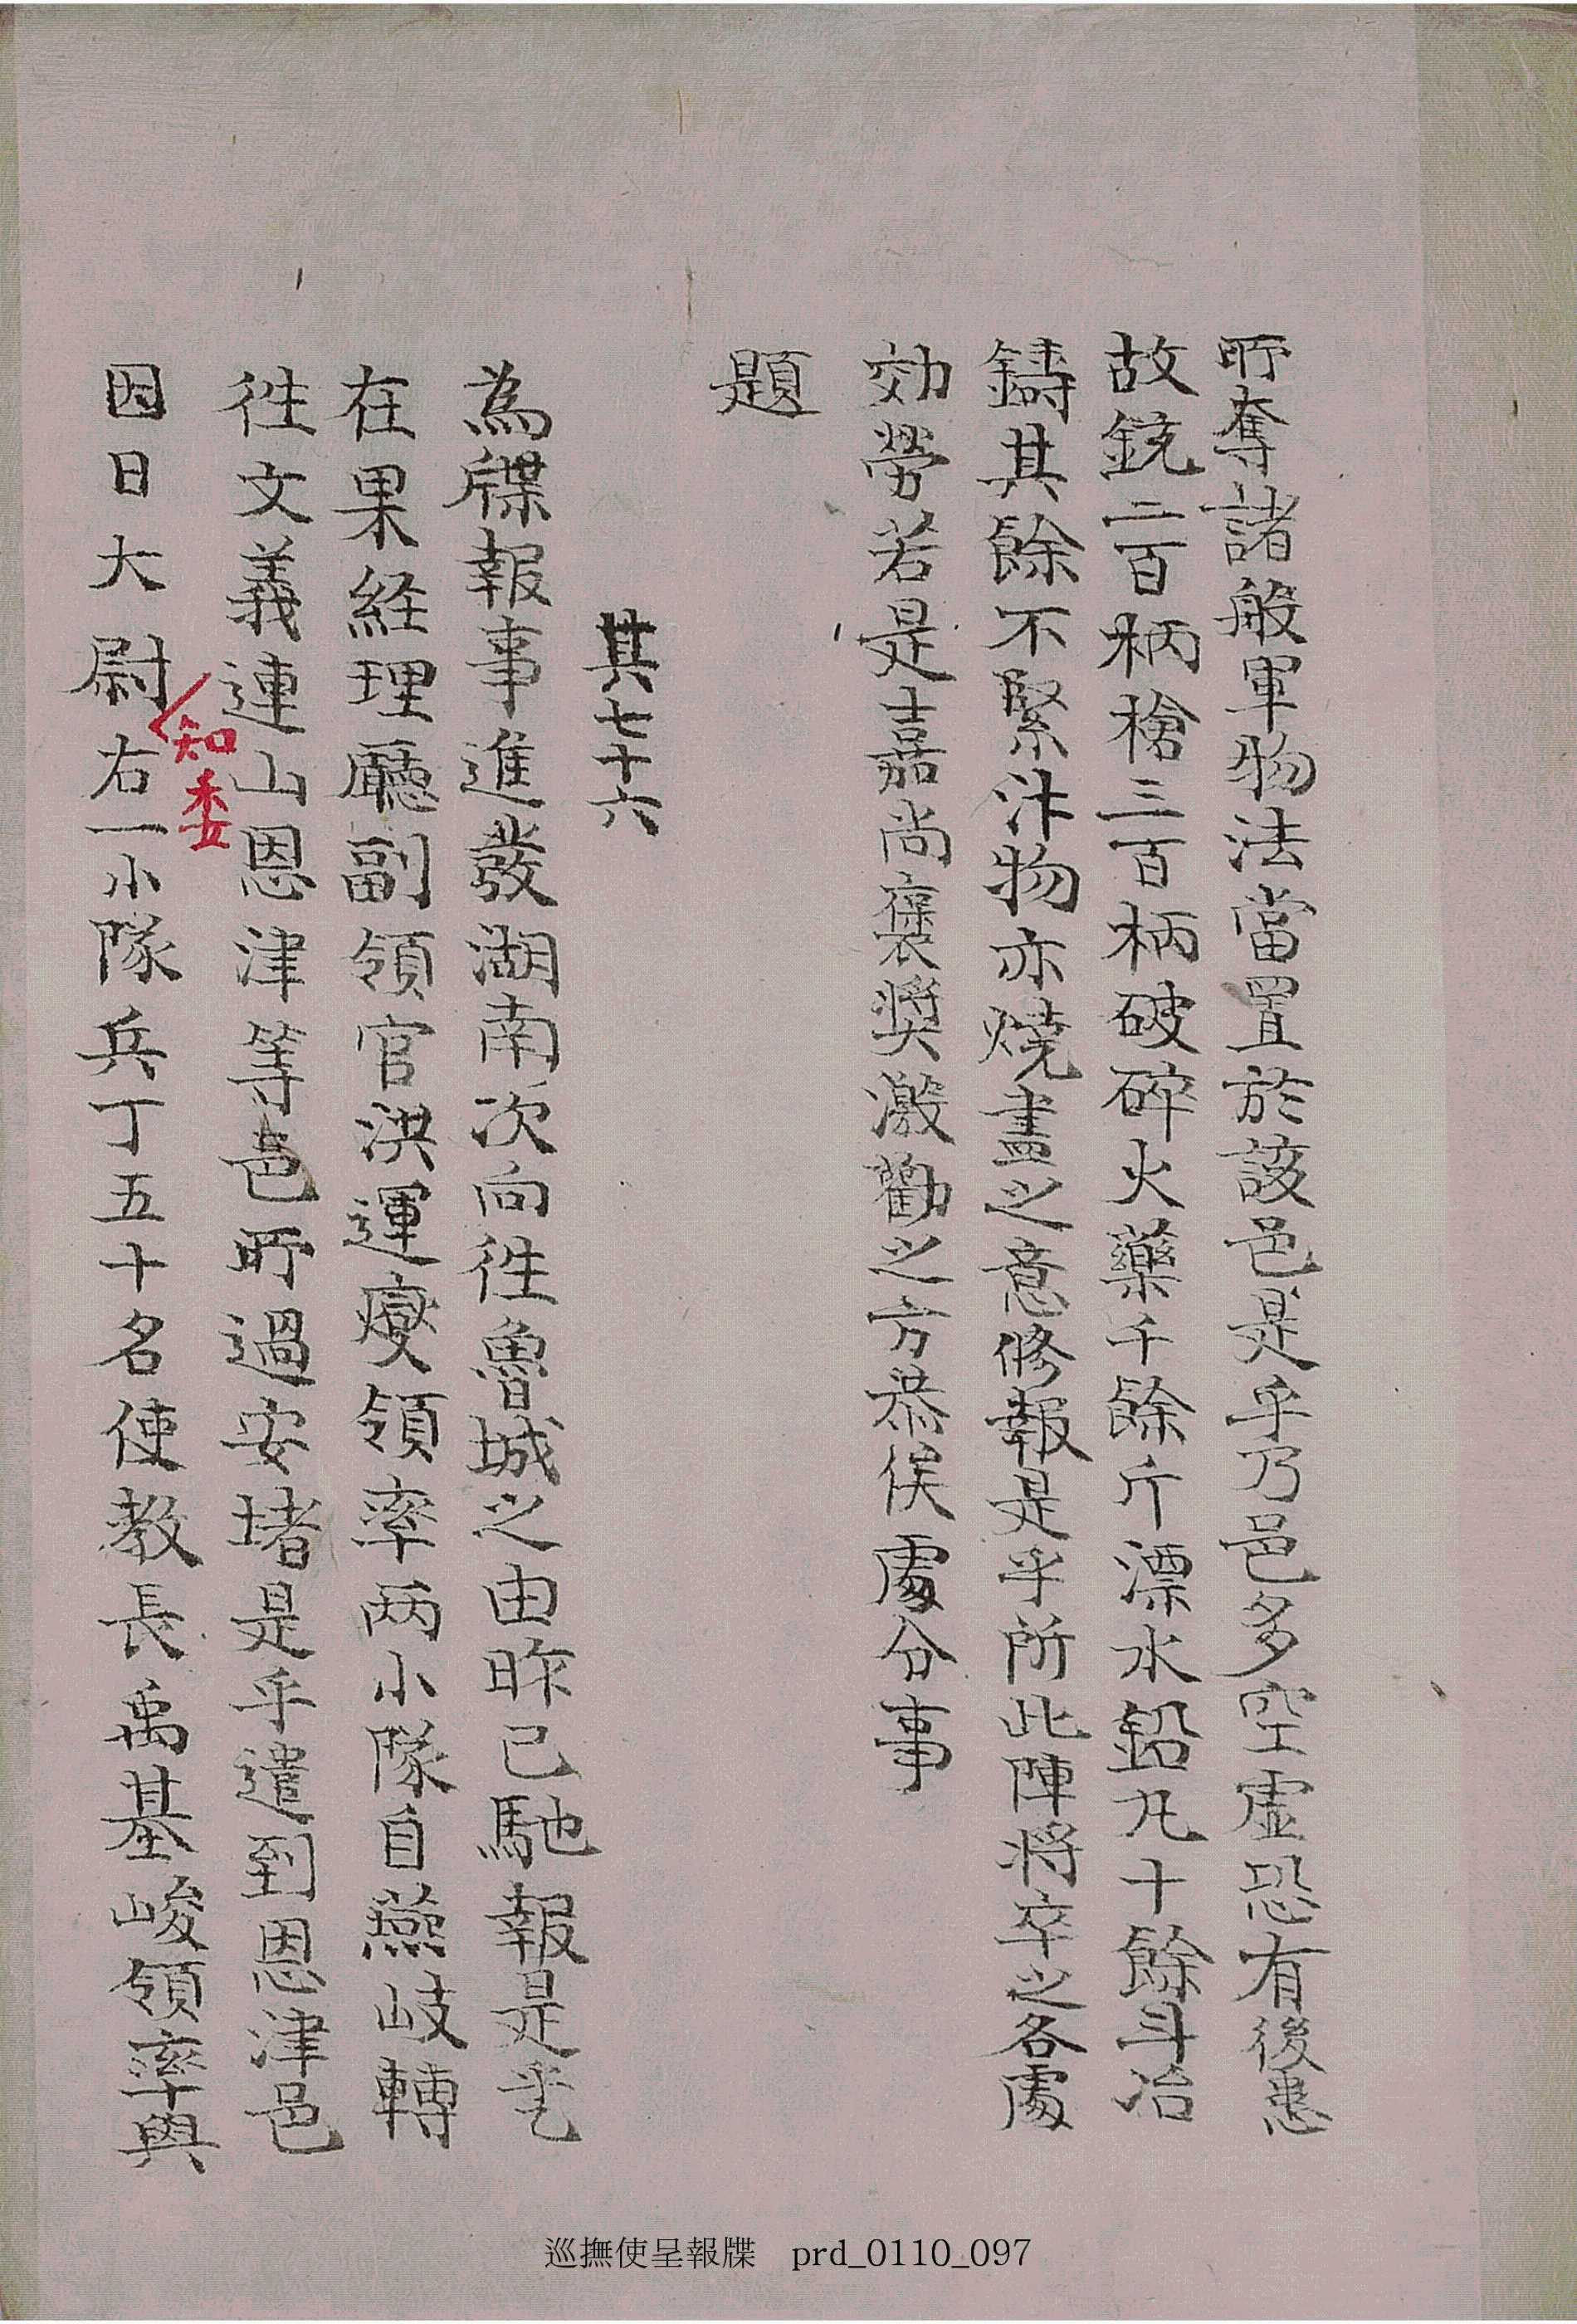 所奪諸般軍物法當置於該邑是乎乃邑多空虛恐有後患
故銃二百柄槍三百柄破碎火藥千餘斤漂水鉛丸十餘斗冶
鑄其餘不緊汁物亦燒盡之意修報是乎所此陣將卒之各處
効勞若是嘉尚襃奬激勸之方恭俟處分事
題
其七十六
為牒報事進發湖南次向徃魯城之由昨已馳報是乎
在果経理廳副領官洪運燮領率两小隊自燕岐轉
徃文義連山恩津等邑所過安堵是乎遣到恩津邑
因日大尉右一小隊兵丁五十名使教長禹基峻領率與
知委
巡撫使呈報牒 prd_0110_097